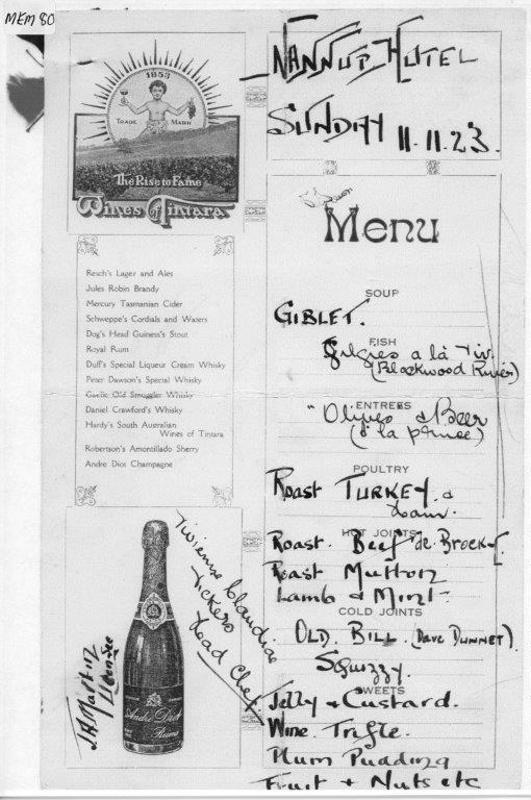 MEM 80
1853
TRADE MARK
The Rise to Fame
Wines of Tintara
Resch's Lager and Ales
Jules Robin Brandy
Mercury Tasmanian Cider
Schweppe's Cordials and Waters
Dog's Head Guiness's Stout
Royal Rum
Duff's Special Liqueur Cream Whisky
Peter Dawson's Special Whisky
Gaelic Old Smuggler Whisky
Daniel Crawford's Whisky
Hardy's South Australian
Wines of Tintara
Robertson's Amontillado Sherry
Andre Diot Champagne
J H Martin
Licensee
Andre Diot
Reims
Vivienne Claudias
Vickers
Head Chef
NANNUP HOTEL
SUNDAY 11.11.23.
Menu
SOUP
GIBLET.
FISH
Gilgies a là Viv.
(Blackwood River)
ENTREES
"Olives & Beer
(a la prince)
POULTRY
Roast TURKEY &
HOT JOINTS
Roast. Beef de Brock
Roast Mutton
Lamb & Mint.
COLD JOINTS
OLD. BILL. (DAVE DUNNET).
Squizzy.
SWEETS
Jelly & Custard.
Wine Trifle.
Plum Pudding
Fruit + Nuts etc